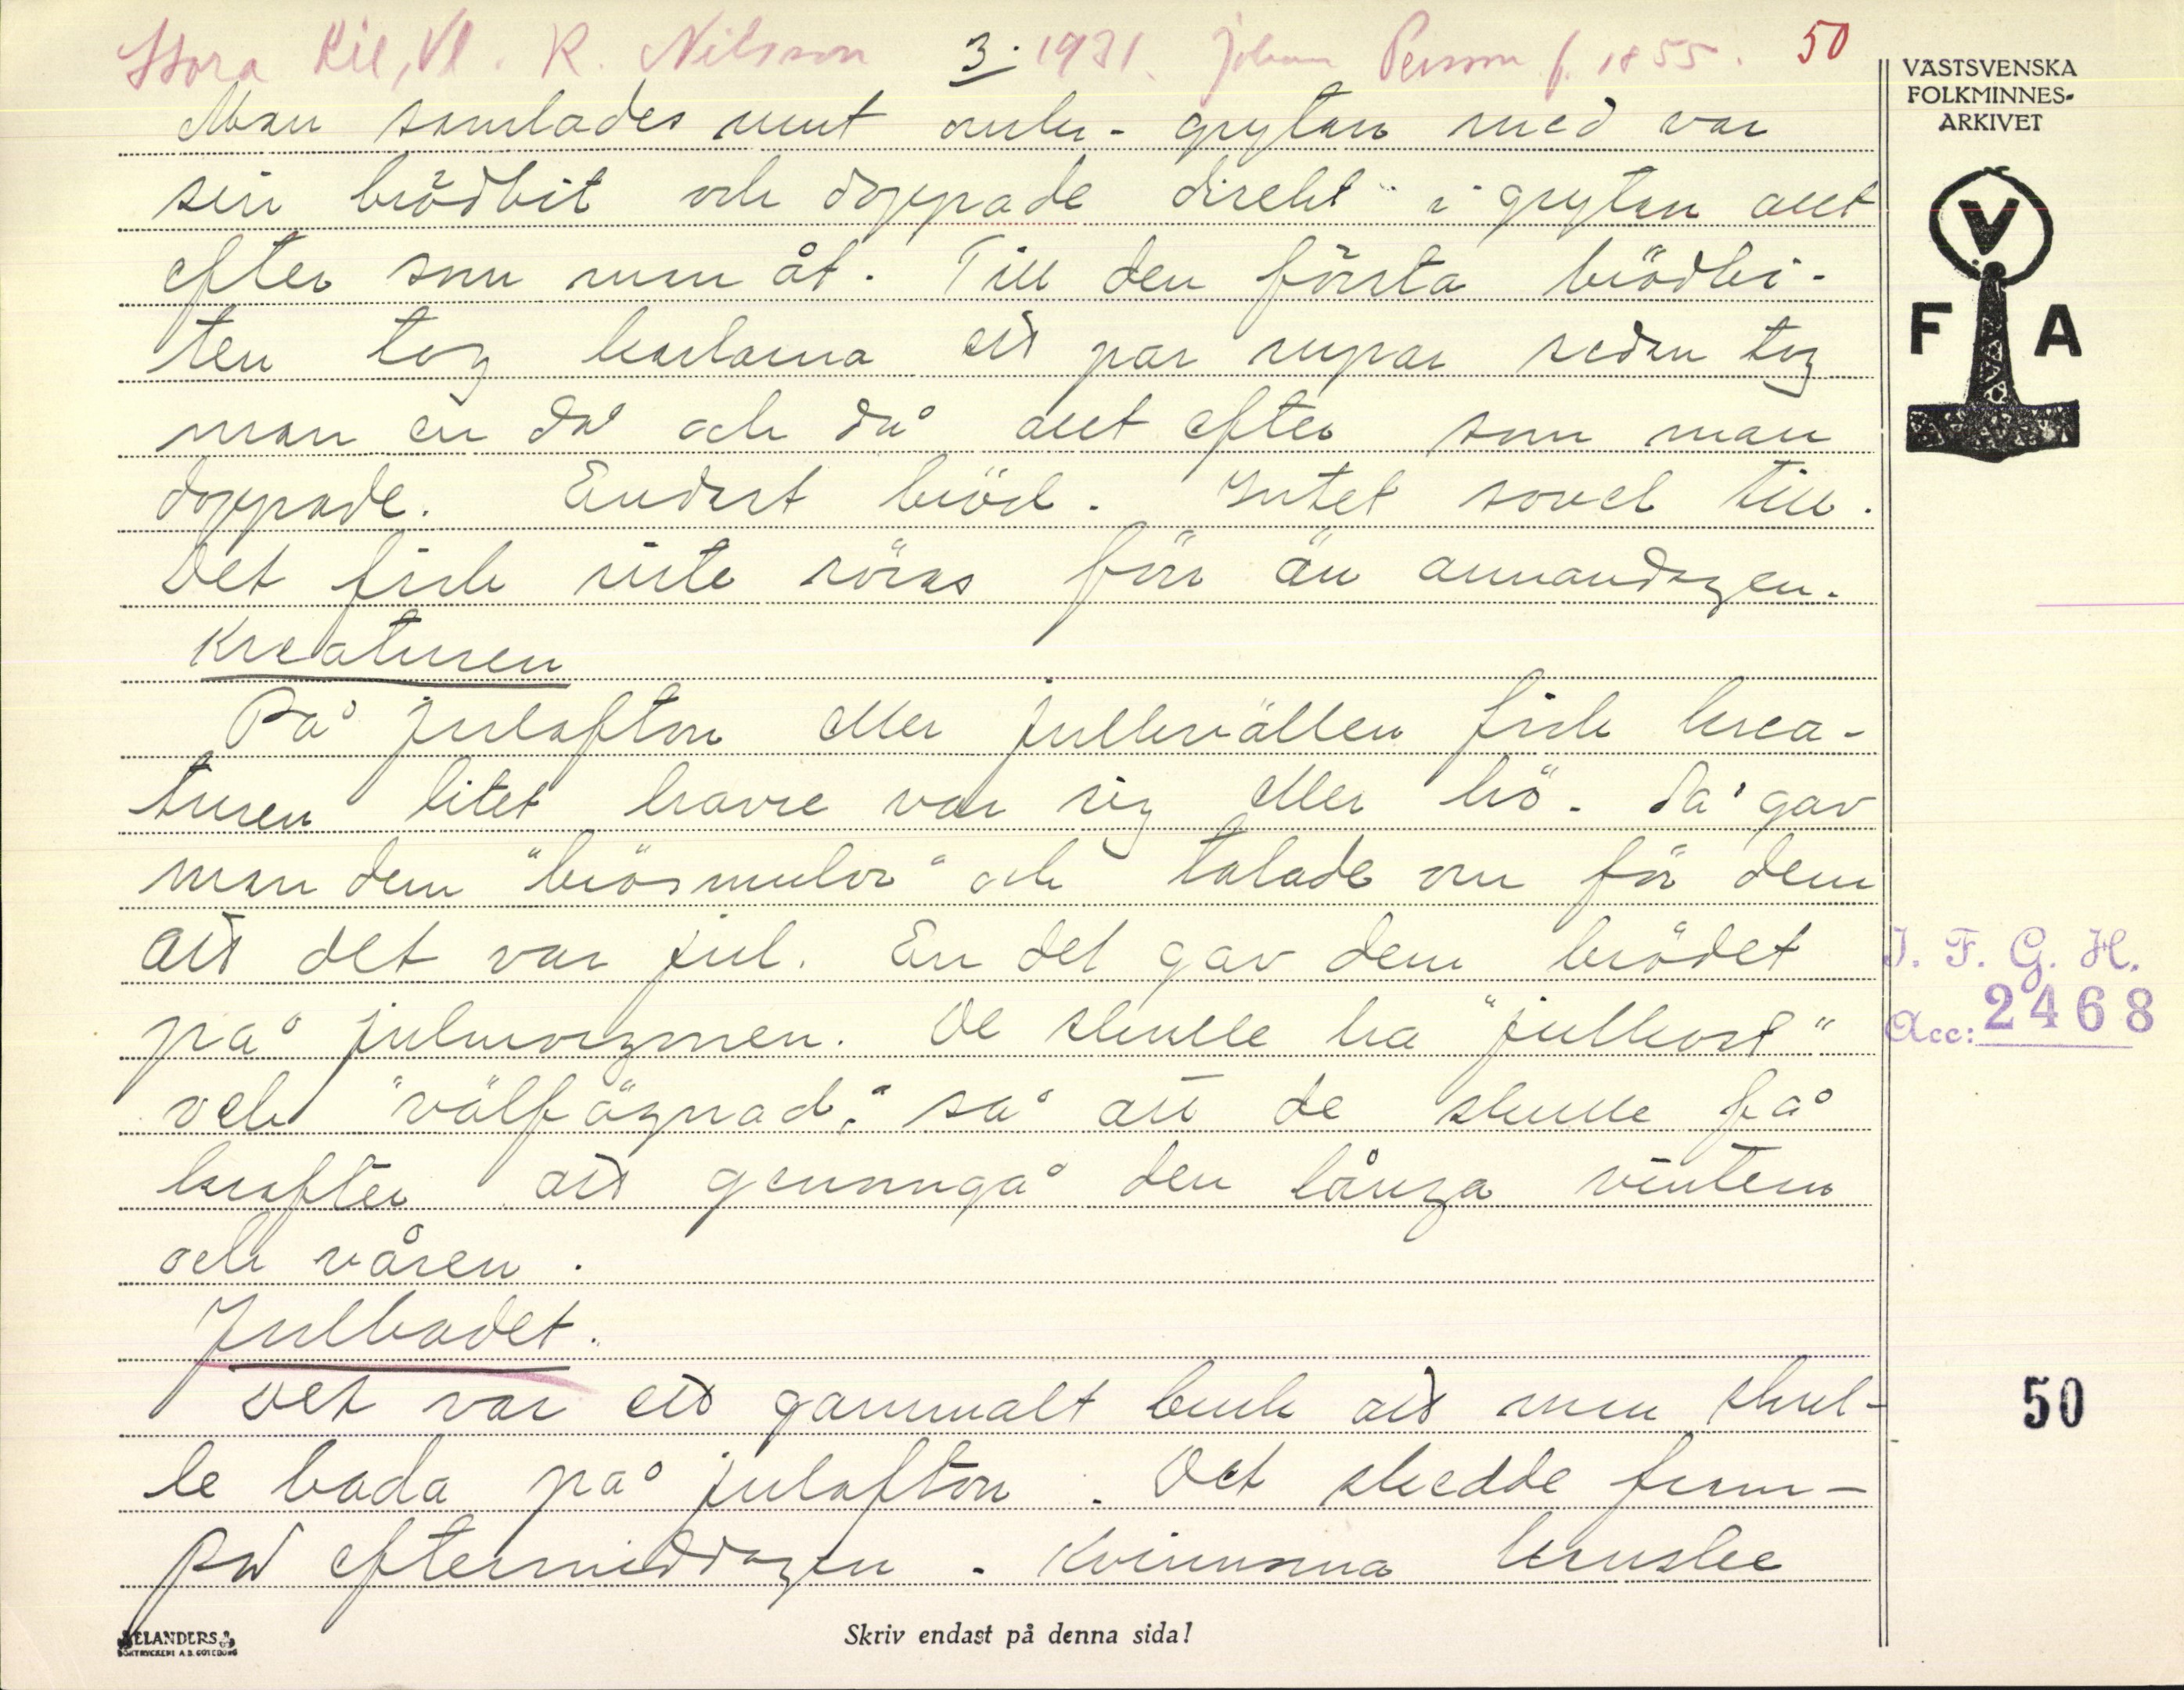 Stora Kil, Vl. R. Nilsson 3. 1931. Johan Persson f. 1855. 50
Man samlades runt omkr- grytan med var
sin brödbit och doppade direkt i grytan allt
efter som man åt. Till den första brödbi-
ten tog karlarna ett par supar sedan tog
man en då och då allt efter som man
doppade. Endast bröd. Intet sovel till.
Det fick inte röras förr än annandagen.
Kreaturen
På julafton eller julkvällen fick krea-
turen litet havre var sig eller hö. Då gav
man dem "brösmulor" och talade om för dem
att det var jul. En del gav dem brödet
på julmorgonen. De skulle ha "julkost"
och "välfägnad," så att de skulle få
krafter att genomgå den långa vintern
och våren.
Julbadet.
Det var ett gammalt bruk att man skul-
le bada på julafton. Det skedde fram-
på eftermiddagen. Kvinnorna kanske
VÄSTSVENSKA
FOLKMINNES-
ARKIVET
V
F A
I. F. G. H.
Acc: 2468
50
ELANDERS
BOKTRYCKERI A.B. GÖTEBORG
Skriv endast på denna sida!